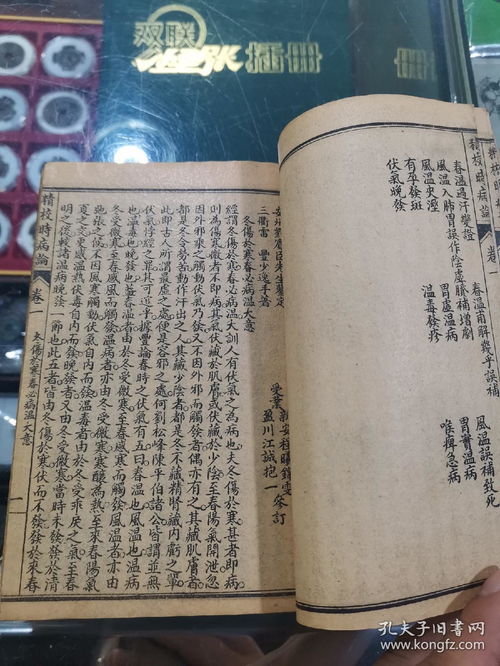 双联
插册
精校時病論 卷一
春溫過汗變證
風溫入肺胃誤作陰虛腠補增劇
風溫夾溼
有孕發斑
伏氣晚發
春溫甫解幾乎誤補
胃虛溫病
溫毒發疹
風溫誤補致死
胃實溫病
喉痺急病
三衢雷 豐少逸手著
盈川江誠抱一
參訂
冬傷於寒春必病溫大意
經謂冬傷於寒春必病溫大訓人有伏氣之為病也夫冬傷於寒甚者即病
則為傷寒微者不即病其氣伏藏於肌膚或伏藏於少陰至春陽氣開泄忽
因外邪乘之觸動伏氣乃發又不因外邪而觸發者偶亦有之其藏肌膚者
都是冬令勞苦動作汗出之人其藏少陰者都是冬不藏精腎藏內虧之輩
此即古人所謂最虛之處便是容邪之處何劉松峰陳平伯諸公皆謂並無
伏氣悖經之罪其可逭乎據豐論春時之伏氣有五曰春溫也風溫也溫病
也溫毒也晚發也蓋春溫者由於冬受微寒至春感寒而觸發風溫者亦由
冬受微寒至春感風而觸發溫病者亦由冬受微寒寒釀為熱至來春陽氣
弛張之候不因風寒觸動伏氣自內而發溫毒者由於冬受乖戾之氣至春
夏之交更感溫熱伏毒自內而發晚發者又由冬受微寒當時未發發於清
明之後較諸溫病晚發一節也此五者皆由冬傷於寒伏而不發發於來春
精校時病論 卷一 冬傷於寒春必病溫大意 一
孔夫子旧书网
www.kongfz.com